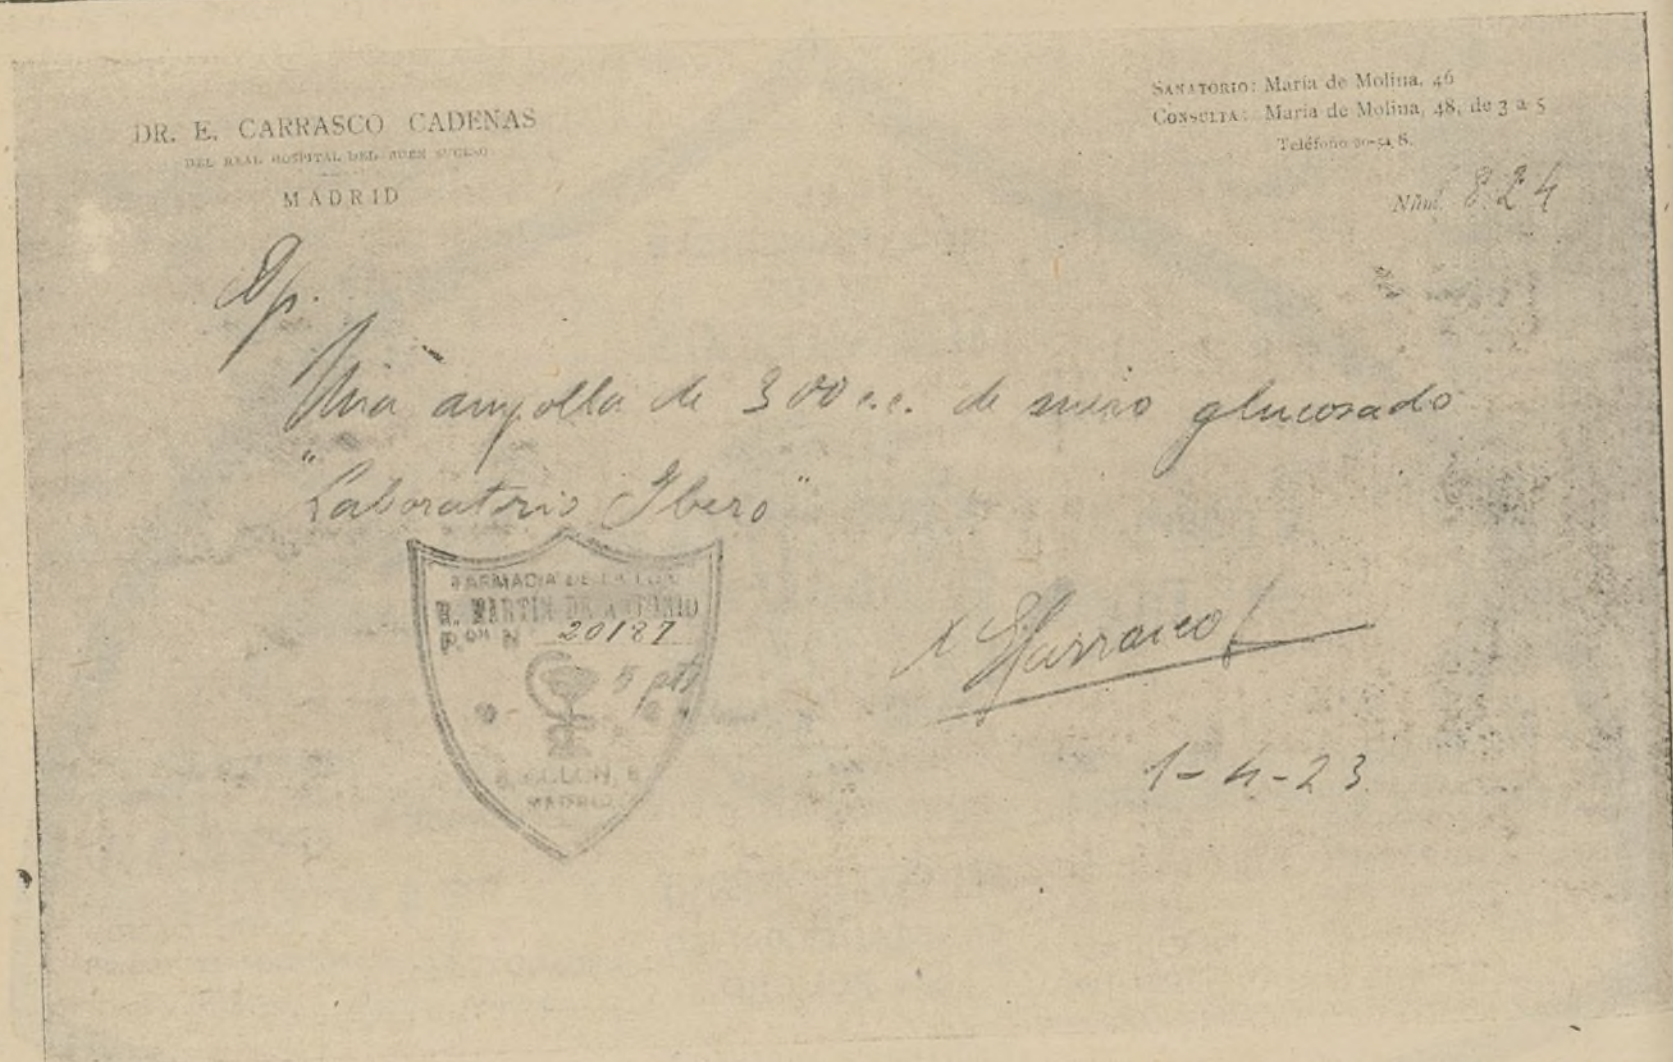 DR. E. CARRASCO CADENAS
DEL REAL HOSPITAL DEL BUEN SUCESO
MADRID
SANATORIO: María de Molina, 46
CONSULTA: María de Molina, 48, de 3 a 5
Teléfono S.
Núm. 824
Dp.
Una ampolla de 300 c.c. de suero glucosado
"Laboratorio Ibero"
FARMACIA DE
R. MARTIN DE ANTONIO
P.ON N 20187
5 pts
MADRID
Carrasco
1-4-23